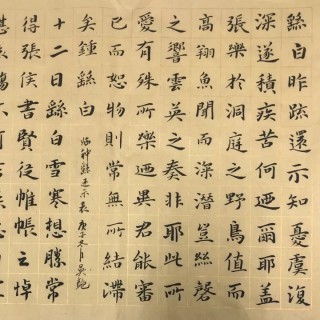 繇白昨疏還示知憂虞復
深遂積疾苦何迺爾耶蓋
張樂於洞庭之野鳥值而
高翔魚聞而深潛豈絲磬
之響雲英之奏非耶此所
愛有殊所樂迺異君能審
已而恕物則常無所結滯
矣鍾繇白
臨鍾繇還示表 冬月吳
十二日繇白雪寒想勝常
得張侯書賢從帷帳之悼